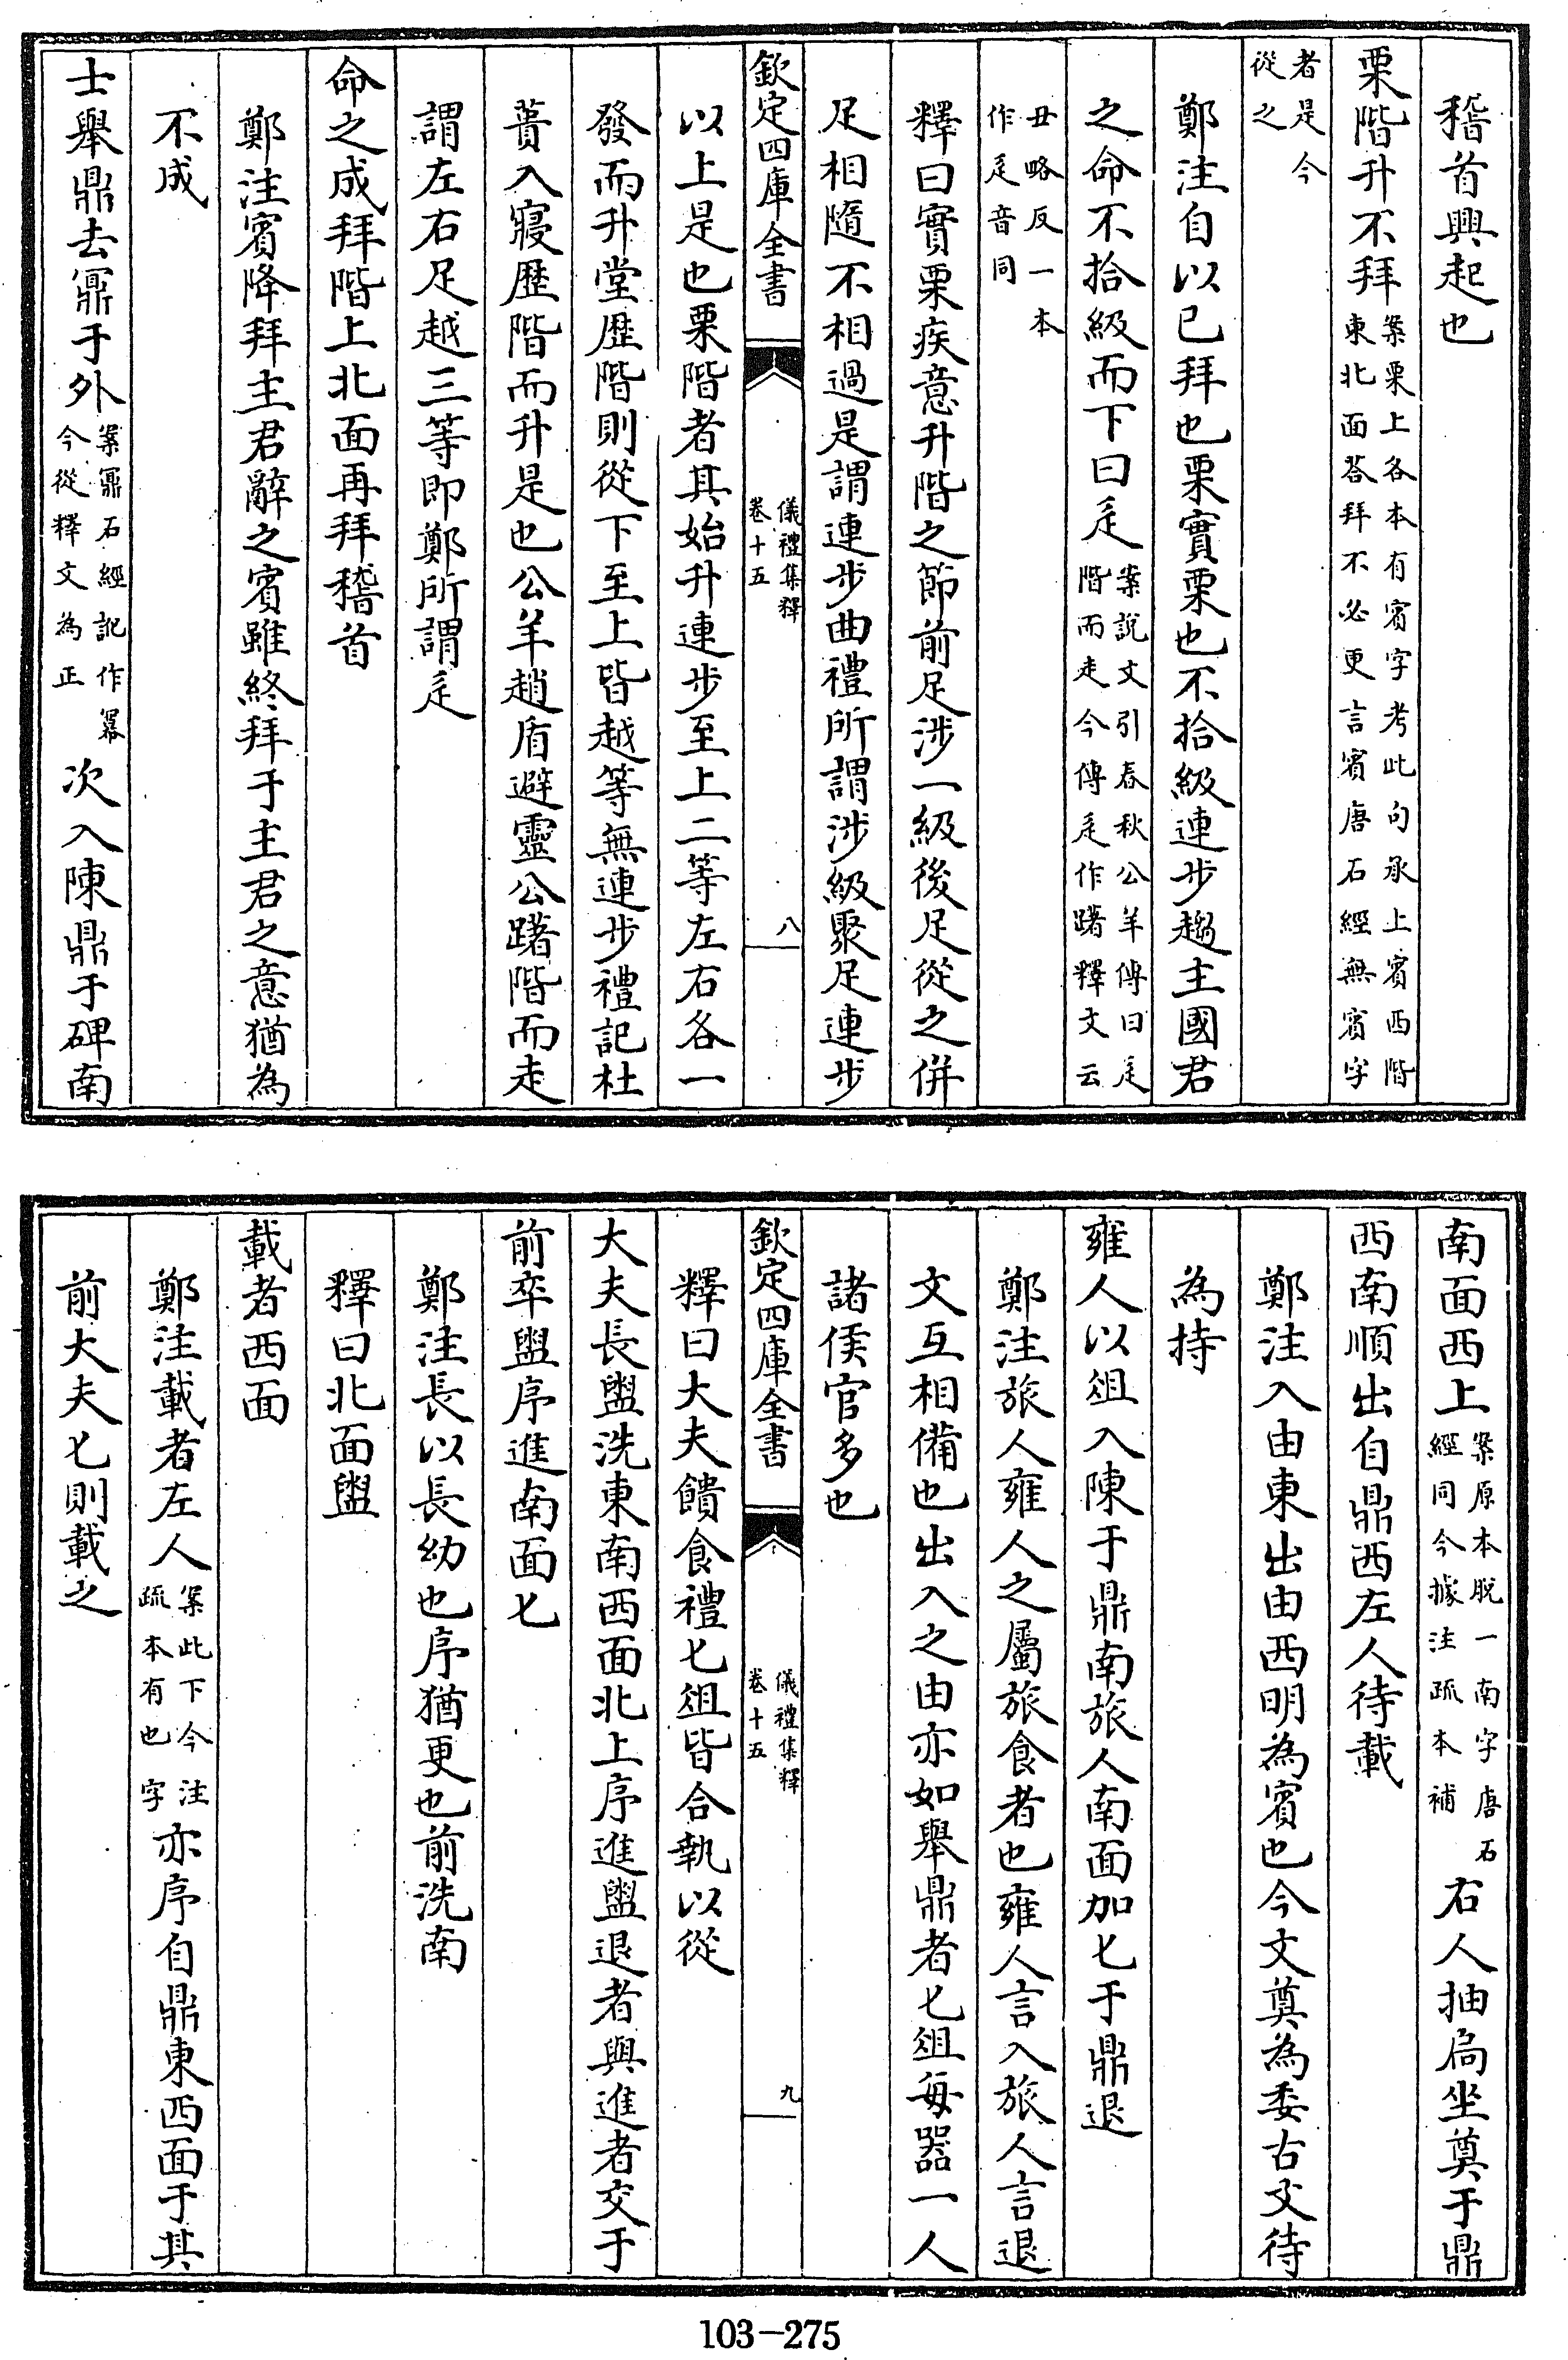 稽首興起也
栗階升不拜案栗上各本有賓字考此句承上賓西階東北面荅拜不必更言賓唐石經無賓字
者是今從之
鄭注自以已拜也栗實栗也不拾級連步趨主國君
之命不拾級而下曰辵案說文引春秋公羊傳曰辵階而走今傳辵作躇釋文云
丑略反一本作辵音同
釋曰實栗疾意升階之節前足涉一級後足從之併
足相隨不相過是謂連步曲禮所謂涉級聚足連步
欽定四庫全書 儀禮集釋卷十五 八
以上是也栗階者其始升連步至上二等左右各一
發而升堂歷階則從下至上皆越等無連步禮記杜
蕢入寢歷階而升是也公羊趙盾避靈公躇階而走
謂左右足越三等即鄭所謂辵
命之成拜階上北面再拜稽首
鄭注賓降拜主君辭之賓雖終拜于主君之意猶為
不成
士舉鼎去鼏于外案鼏石經訛作羃今從釋文為正次入陳鼎于碑南
南面西上案原本脫一南字唐石經同今據注疏本補右人抽扃坐奠于鼎
西南順出自鼎西左人待載
鄭注入由東出由西明為賓也今文奠為委古文待
為持
雍人以俎入陳于鼎南旅人南面加匕于鼎退
鄭注旅人雍人之屬旅食者也雍人言入旅人言退
文互相備也出入之由亦如舉鼎者匕俎每器一人
諸侯官多也
欽定四庫全書 儀禮集釋卷十五 九
釋曰大夫饋食禮匕俎皆合執以從
大夫長盥洗東南西面北上序進盥退者與進者交于
前卒盥序進南面匕
鄭注長以長幼也序猶更也前洗南
釋曰北面盥
載者西面
鄭注載者左人案此下今注疏本有也字亦序自鼎東西面于其
前大夫匕則載之
103-275